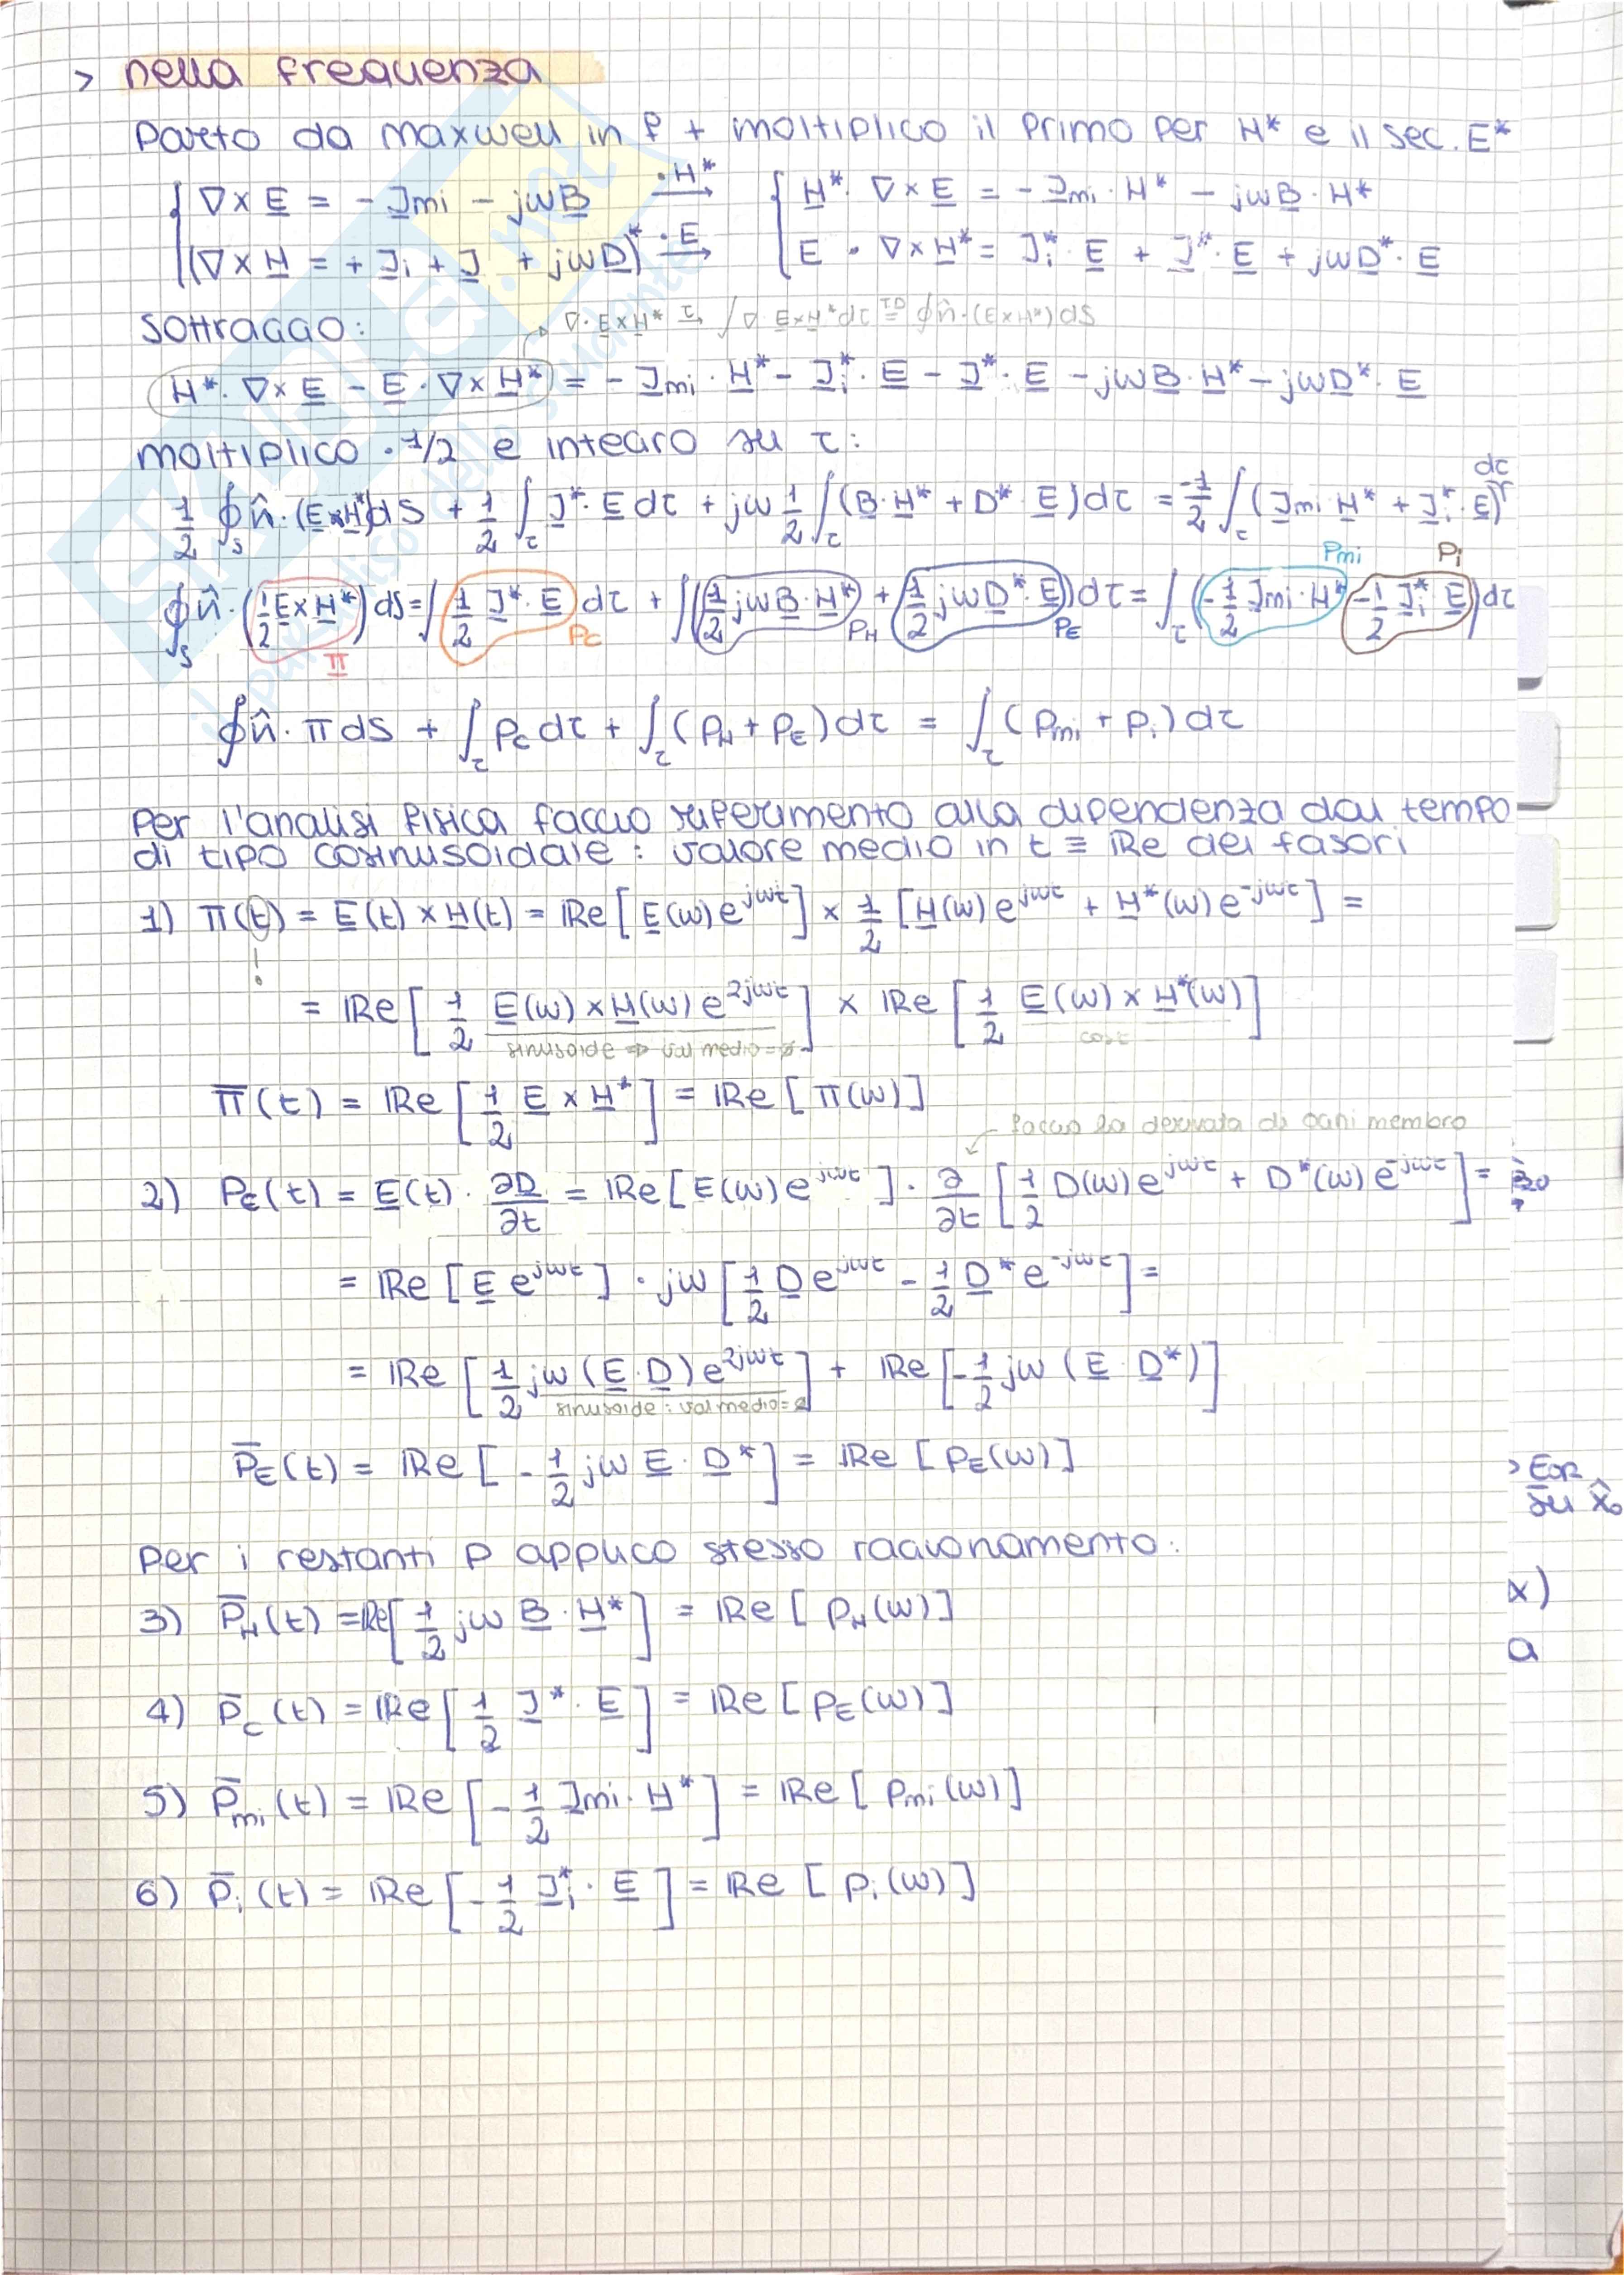 > nella frequenza
Parto da maxwell in f + moltiplico il primo per H* e il sec. E*
{ ∇ x E = - Jmi - jωB  ·H* →  { H* · ∇ x E = - Jmi · H* - jωB · H*
(∇ x H = + Ji + J + jωD)*  · E →  E · ∇ x H* = Ji* · E + J* · E + jωD* · E
→ ∇ · E x H* → ∫ ∇ E x H* dτ = ∮ n̂ · (E x H*) dS
Sottraggo:
H* · ∇ x E - E · ∇ x H* = - Jmi · H* - Ji* · E - J* · E - jωB · H* - jωD* · E
moltiplico · 1/2 e integro su τ:
1/2 ∮s n̂ · (E x H*) dS + 1/2 ∫τ J* · E dτ + jω 1/2 ∫τ (B · H* + D* · E) dτ = -1/2 ∫τ (Jmi H* + Ji* · E) dτ
Pmi Pi
∮s n̂ · (1/2 E x H*) dS = ∫ 1/2 J* · E dτ + ∫ (1/2 jωB · H* + 1/2 jωD* · E) dτ = ∫τ (-1/2 Jmi · H* -1/2 Ji* · E) dτ
π Pc PH PE
∮ n̂ · π dS + ∫τ Pc dτ + ∫τ (PH + PE) dτ = ∫τ (Pmi + Pi) dτ
Per l'analisi fisica faccio riferimento alla dipendenza dal tempo
di tipo cosinusoidale : valore medio in t ≡ Re dei fasori
1) π(t) = E(t) x H(t) = Re [E(ω) e^jωt] x 1/2 [H(ω) e^jωt + H*(ω) e^-jωt] =
!
= Re [1/2 E(ω) x H(ω) e^2jωt] x Re [1/2 E(ω) x H*(ω)]
sinusoide ⇒ val medio = ø cost
π̄(t) = Re [1/2 E x H*] = Re [π(ω)]
faccio la derivata di ogni membro
2) PE(t) = E(t) · ∂D/∂t = Re [E(ω) e^jωt] · ∂/∂t [1/2 D(ω) e^jωt + D*(ω) e^-jωt] =
= Re [E e^jωt] · jω [1/2 D e^jωt - 1/2 D* e^-jωt] =
= Re [1/2 jω (E · D) e^2jωt] + Re [-1/2 jω (E · D*)]
sinusoide : val medio = ø
P̄E(t) = Re [-1/2 jω E · D*] = Re [PE(ω)]
> EOR
su x̂o
Per i restanti p applico stesso ragionamento:
3) P̄H(t) = Re [1/2 jω B · H*] = Re [PH(ω)]
x)
a
4) P̄c(t) = Re [1/2 J* · E] = Re [PE(ω)]
5) P̄mi(t) = Re [-1/2 Jmi · H*] = Re [Pmi(ω)]
6) P̄i(t) = Re [-1/2 Ji* · E] = Re [Pi(ω)]